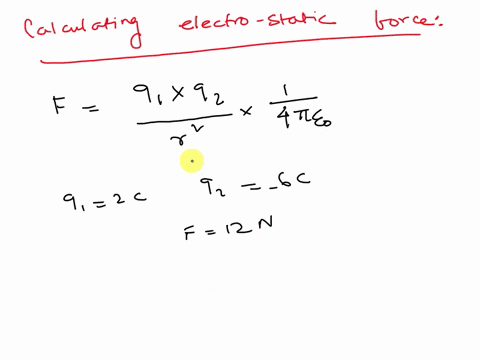 Calculating electro-static force:
F = q₁ × q₂ / r² × 1 / 4πε₀
q₁ = 2 C q₂ = -6 C
F = 12 N